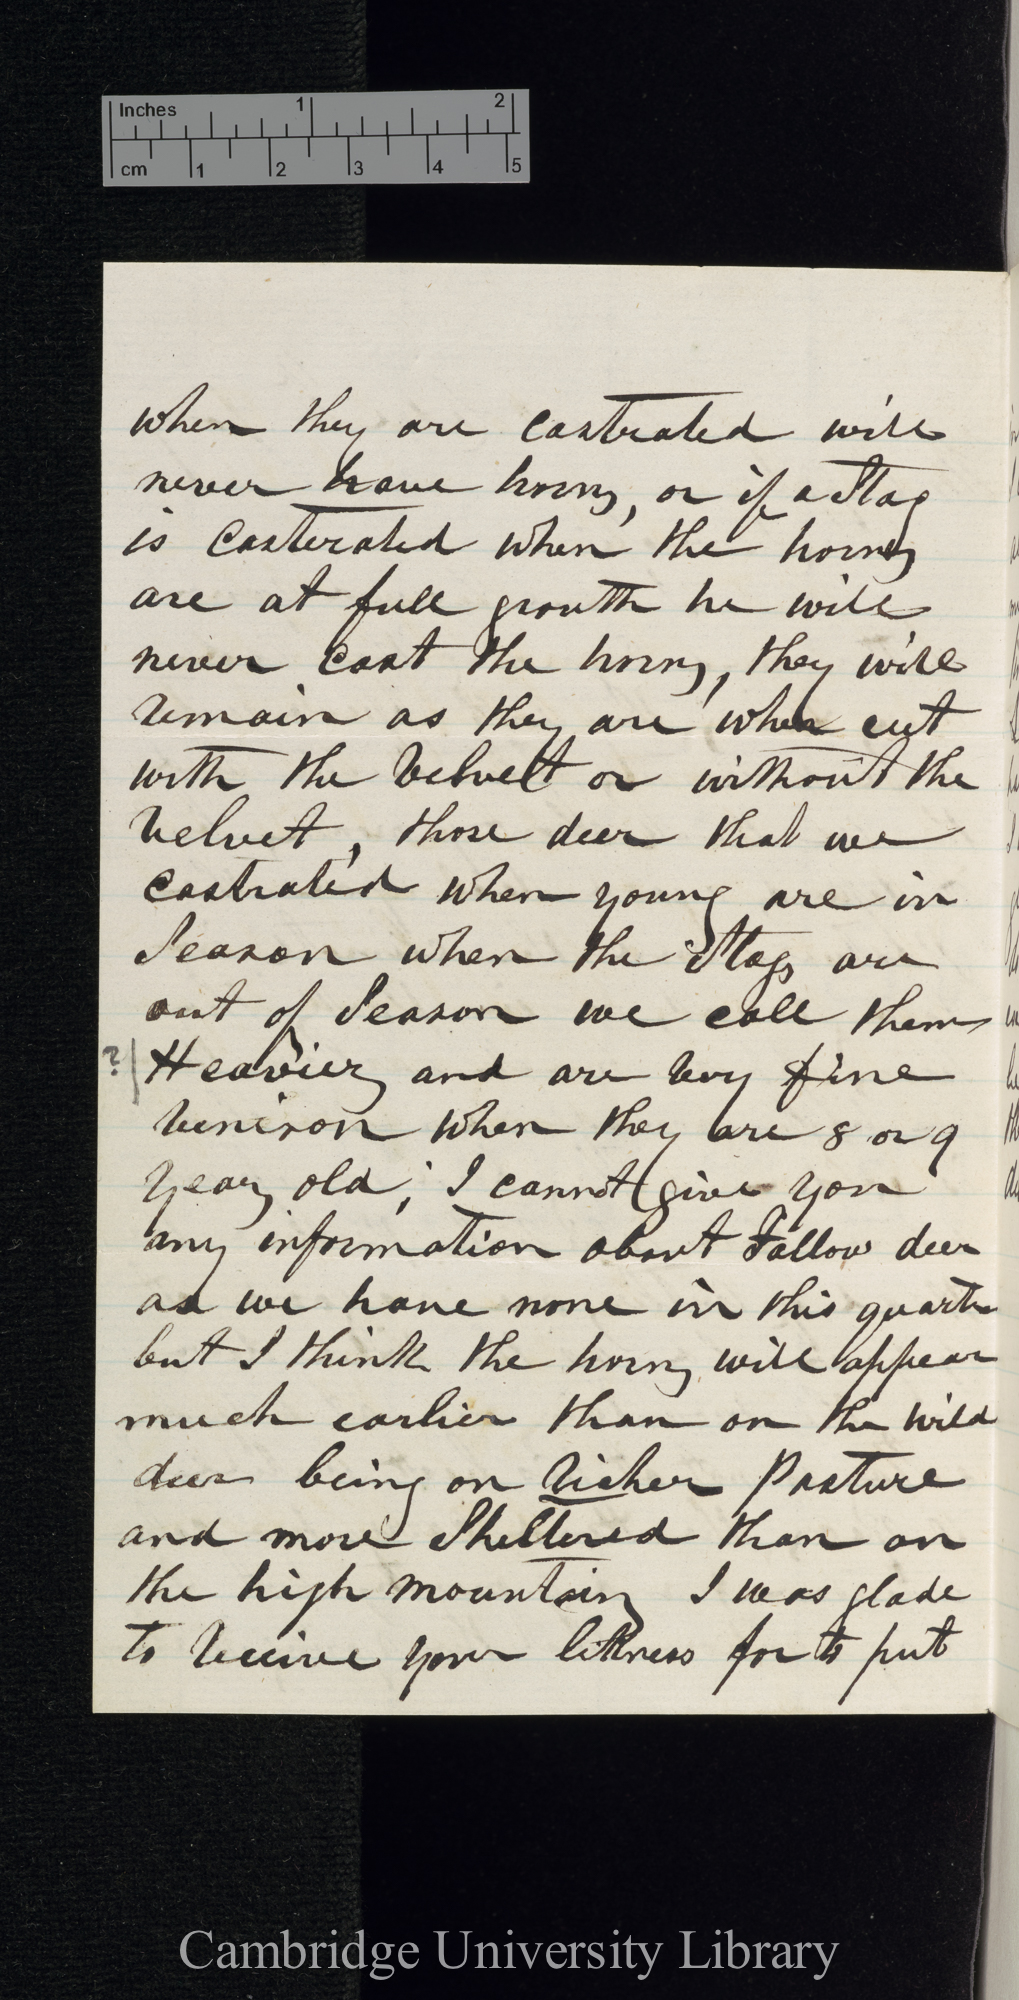 Inches 1 2
cm 1 2 3 4 5
when they are castrated will
never have horns, or if a Stag
is Casterated when the horns
are at full grouth he will
never Cast the horns, they will
remain as they are when cut
with the Velvet or without the
Velvet, those deer that we
castrated when young are in
Season when the Stags are
out of Season we call them
? Heavier, and are very fine
venison when they are 8 or 9
years old; I cannot give you
any information about Fallow deer
as we have none in this quarter
but I think the horns will appear
much earlier than on the wild
deer being on richer Pasture
and more Sheltered than on
the high mountains I was glade
to receive your likness for to put
Cambridge University Library